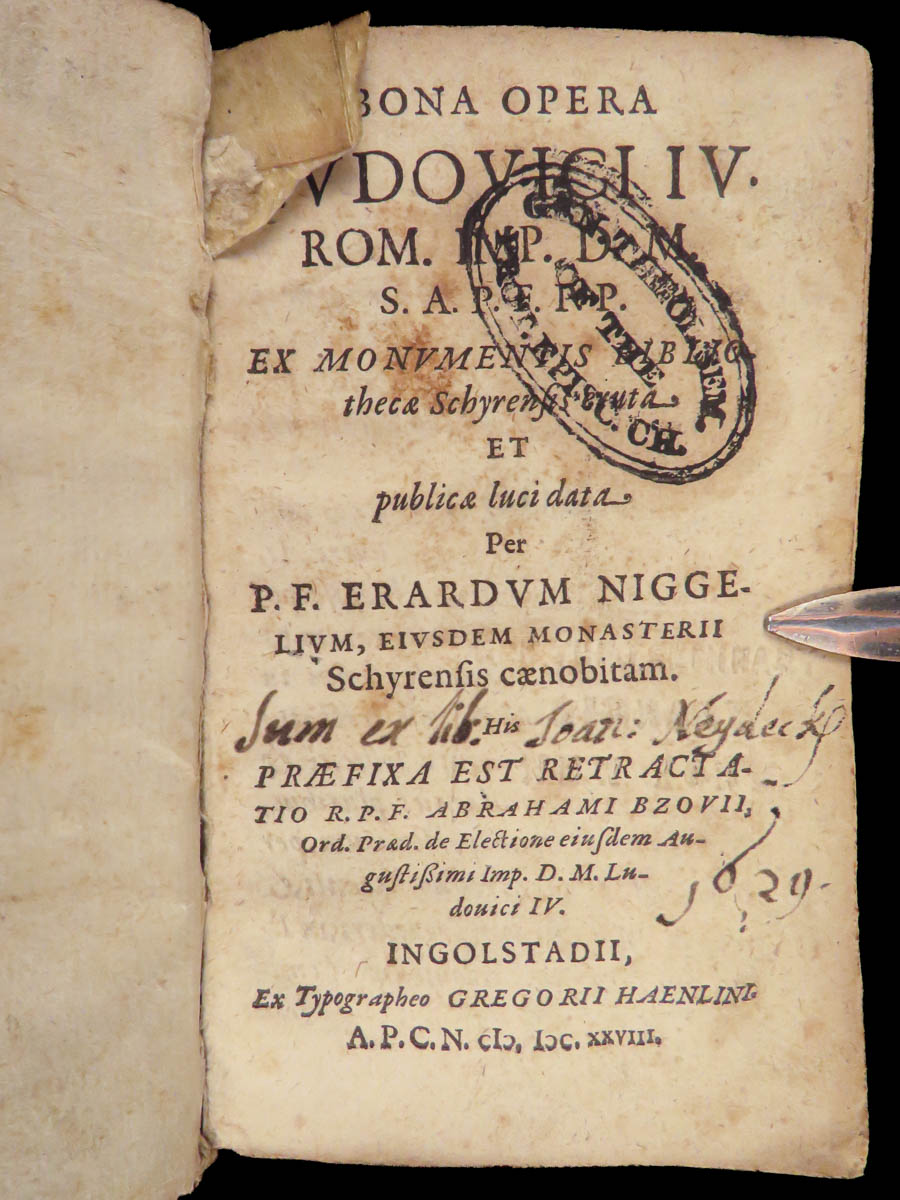 BONA OPERA
LVDOVICI IV.
ROM. IMP. D. M.
S. A. P. F. P. P.
EX MONVMENTIS BIBLIO-
thecæ Schyrensis eruta
ET
publicæ luci data
Per
P. F. ERARDVM NIGGE-
LIVM, EIVSDEM MONASTERII
Schyrenſis cænobitam.
Sum ex lib. Joan: Neydeck
His
PRÆFIXA EST RETRACTA-
TIO R. P. F. ABRAHAMI BZOVII,
Ord. Præd. de Electione eiuſdem Au-
guſtiſſimi Imp. D. M. Lu-
douici IV.
1629.
INGOLSTADII,
Ex Typographeo GREGORII HAENLINI.
A. P. C. N. cIɔ, Iɔc. XXVIII.
GEN. THEOL. SEM.
OF THE
PROT. EPISC. CH.